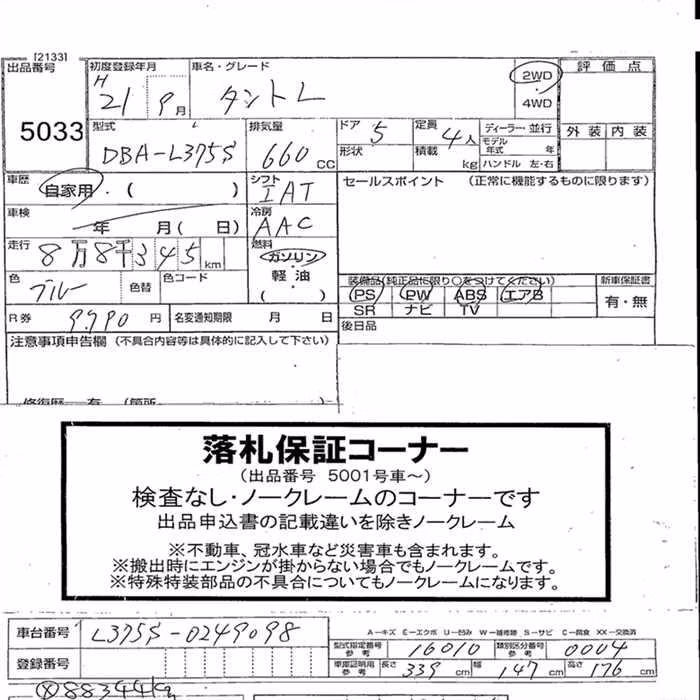 [2133]
出品番号 5033
初度登録年月 H 21 9月
車名・グレード タントL
2WD
4WD
評価点
外装 内装
型式 DBA-L375S
排気量 660 CC
ドア 5
形状
定員 4人
積載 kg
ディーラー・並行
モデル年式 年
ハンドル 左・右
車歴 自家用・( )
シフト IAT
セールスポイント (正常に機能するものに限ります)
車検 年 月( 日)
冷房 AAC
走行 8万8千345km
燃料 ガソリン
軽油
( )
色 ブルー 色替 色コード
装備品(純正品に限り○をつけてください)
PS PW ABS エアB
SR ナビ TV
新車保証書
有・無
R券 9,990円 名変通知期限 月 日
後日品
注意事項申告欄 (不具合内容等は具体的に記入して下さい)
修復歴 有 (箇所
落札保証コーナー
(出品番号 5001号車~)
検査なし・ノークレームのコーナーです
出品申込書の記載違いを除きノークレーム
※不動車、冠水車など災害車も含まれます。
※搬出時にエンジンが掛からない場合でもノークレームです。
※特殊特装部品の不具合についてもノークレームになります。
車台番号 L375S-0249098
A-キズ E-エクボ U-凹み W-補修跡 S-サビ C-腐食 XX-交換済
型式指定番号 参考 16010 類別区分番号 参考 0004
登録番号
車庫証明用 参考 長さ 339cm 幅 147cm 高さ 176cm
88344kg